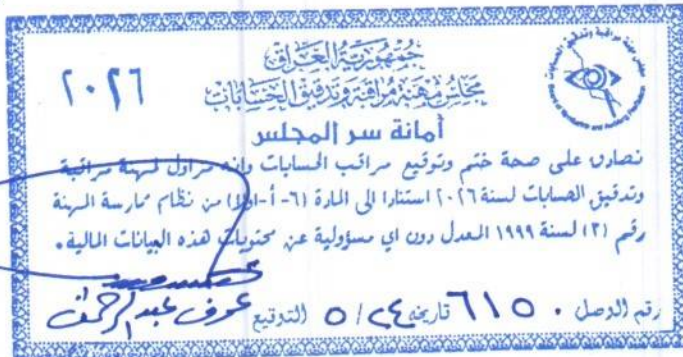 جمهورية العراق
مجلس مهنة مراقبة وتدقيق الحسابات
٢٠٢٦
أمانة سر المجلس
نصادق على صحة ختم وتوقيع مراقب الحسابات وانه مزاول لمهنة مراقبة
وتدقيق الحسابات لسنة ٢٠٢٦ استنادا الى المادة (٦-أ-اولا) من نظام ممارسة المهنة
رقم (٣) لسنة ١٩٩٩ المعدل دون اي مسؤولية عن محتويات هذه البيانات المالية.
رقم الوصل ٦١٥٠ تاريخه ٥/٢٤ التوقيع
عوف عبد الرحمن